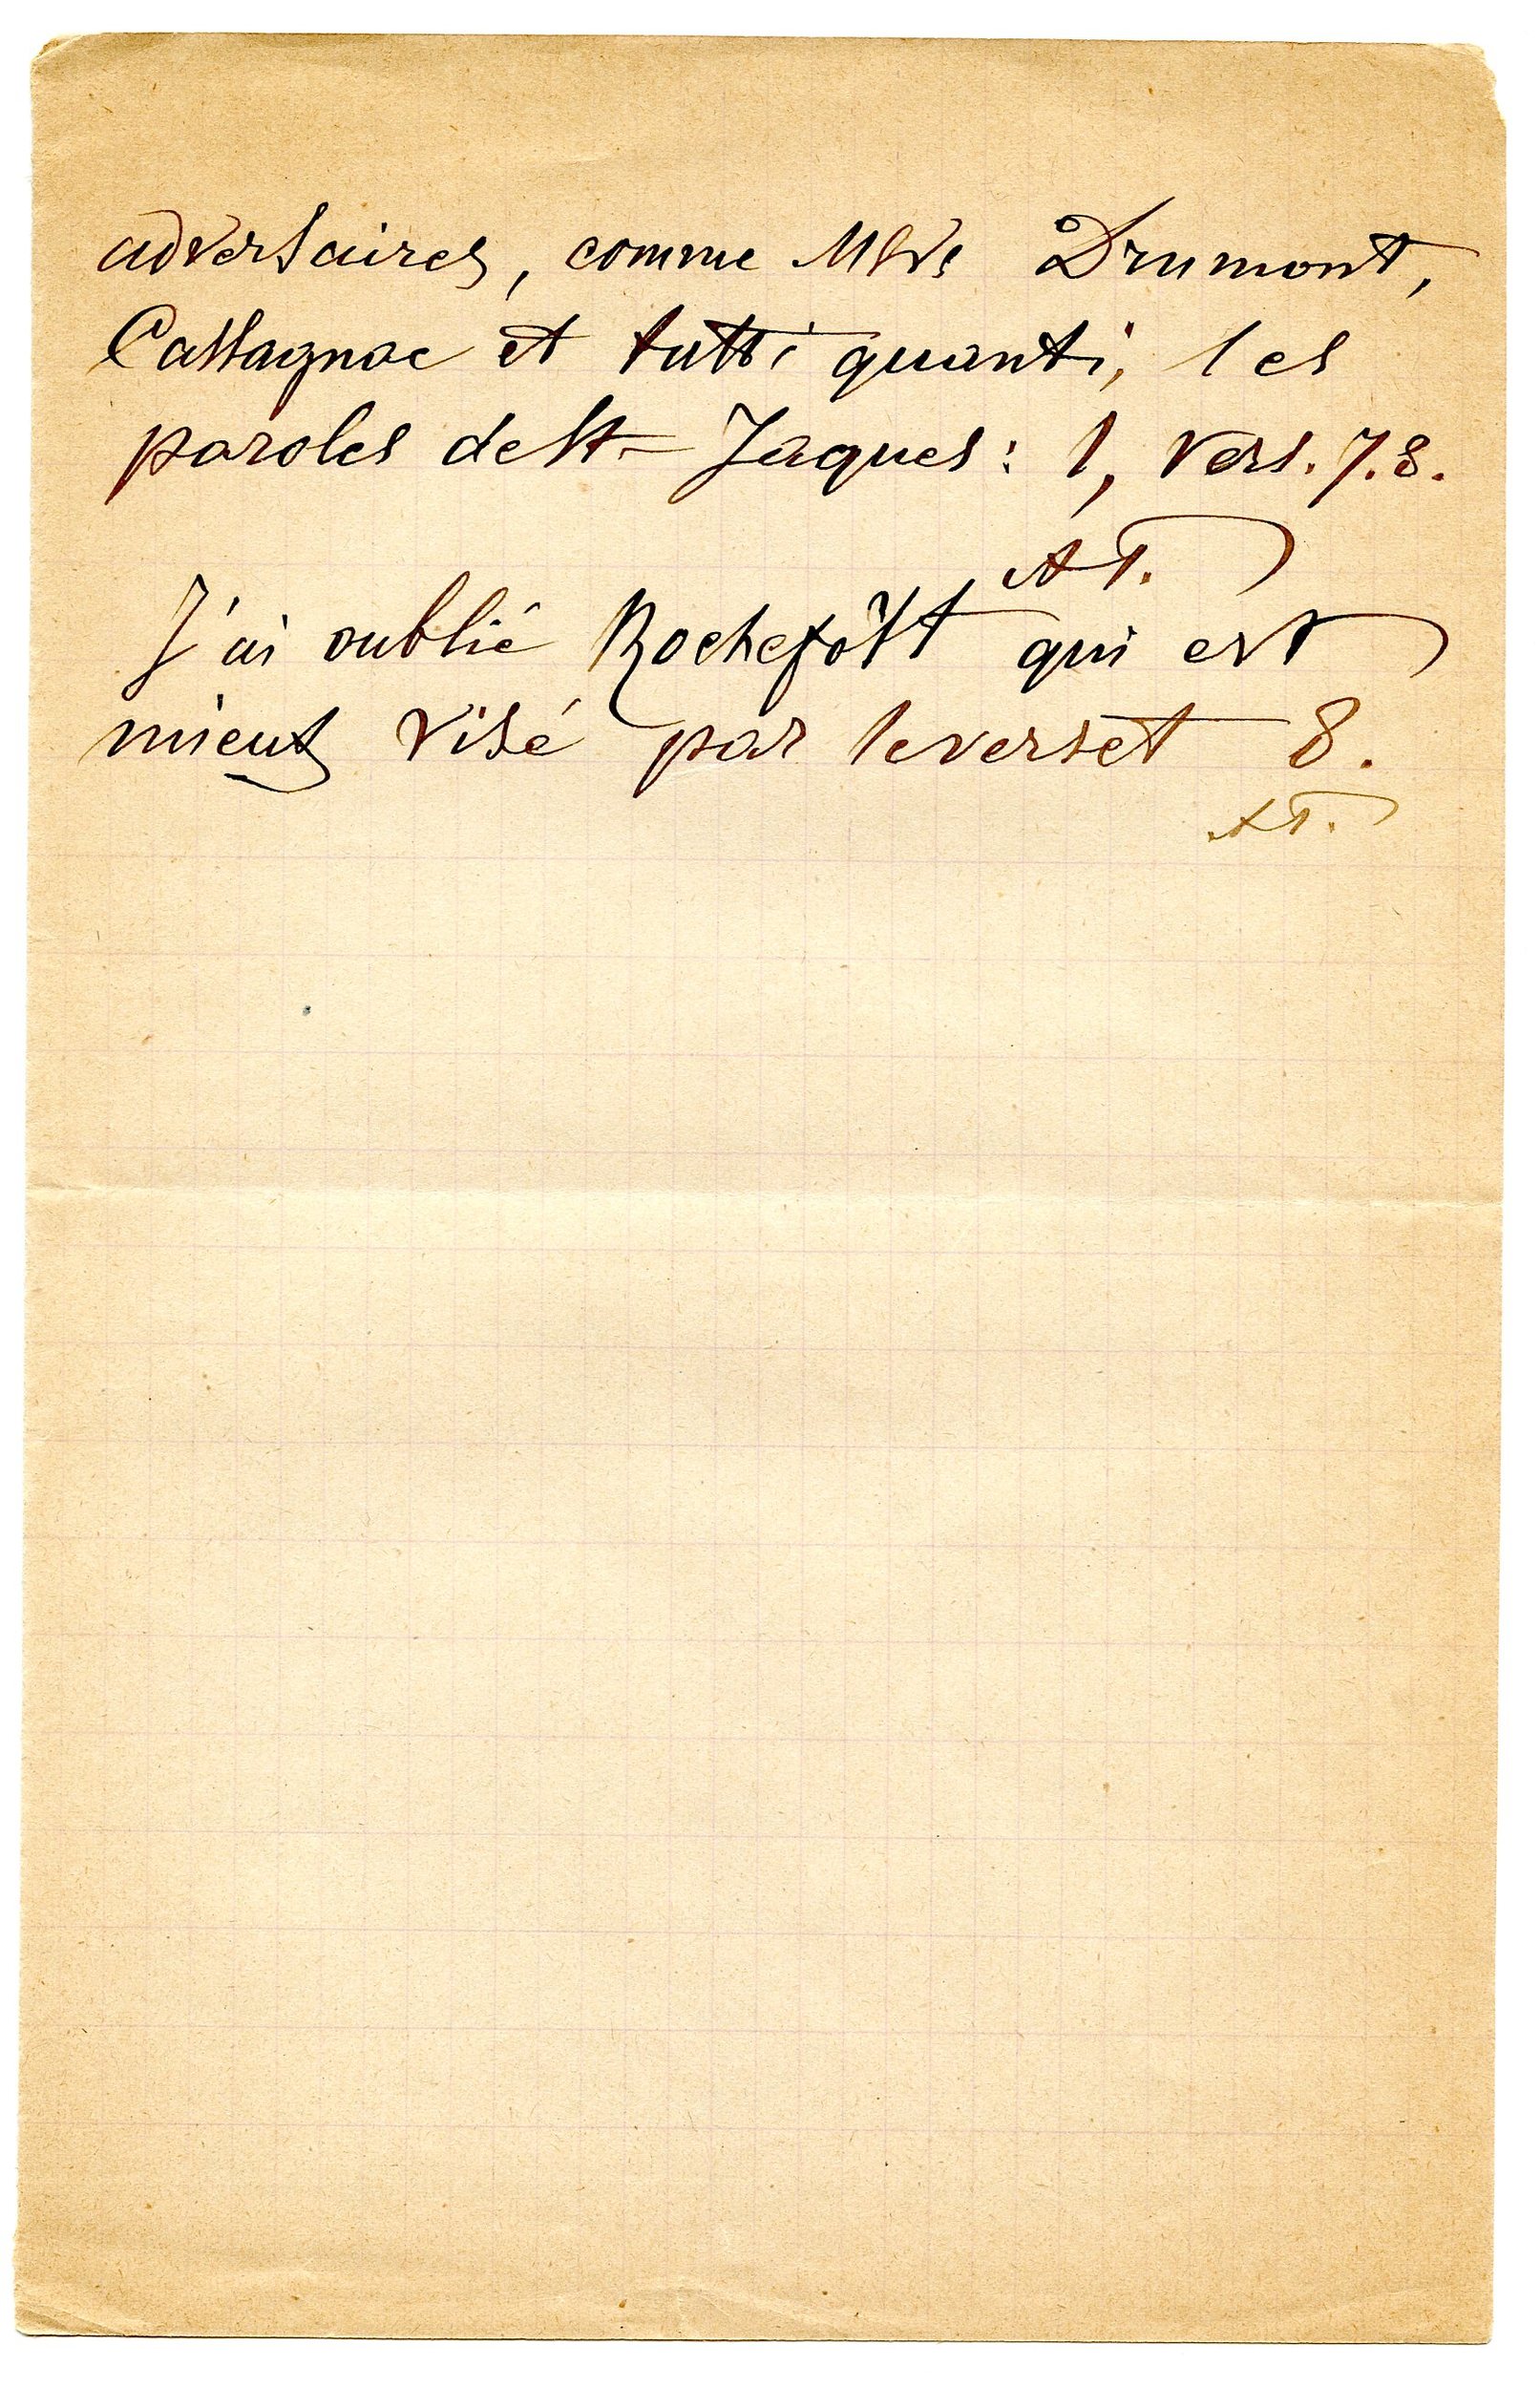 adversaires, comme MMrs Drumont,
Cassagnac et tutti quanti, les
paroles de St- Jaques: 1, vers. 7.8.
AT.
J'ai oublié Rochefort qui est
mieux visé par le verset 8.
AT.